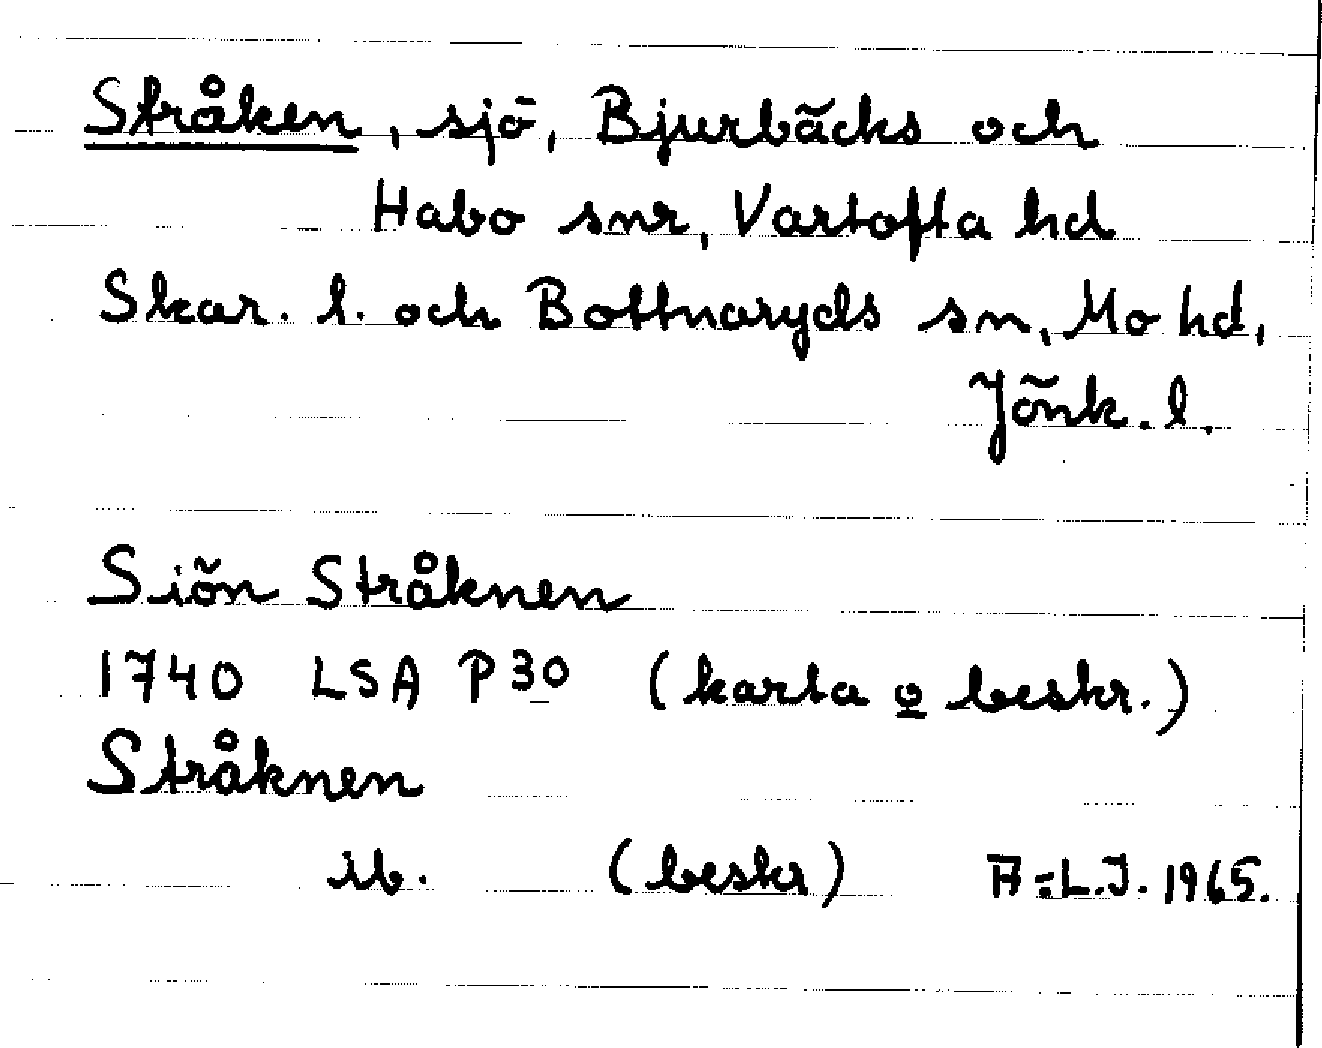 Stråken, sjö, Bjurbäcks och
Habo snr, Vartofta hd
Skar. l. och Bottnaryds sn, Mo hd,
Jönk. l.
Siön Stråknen
1740 LSA P30 (karta o beskr.)
Stråknen
ib. (beskr) A-L.J. 1965.